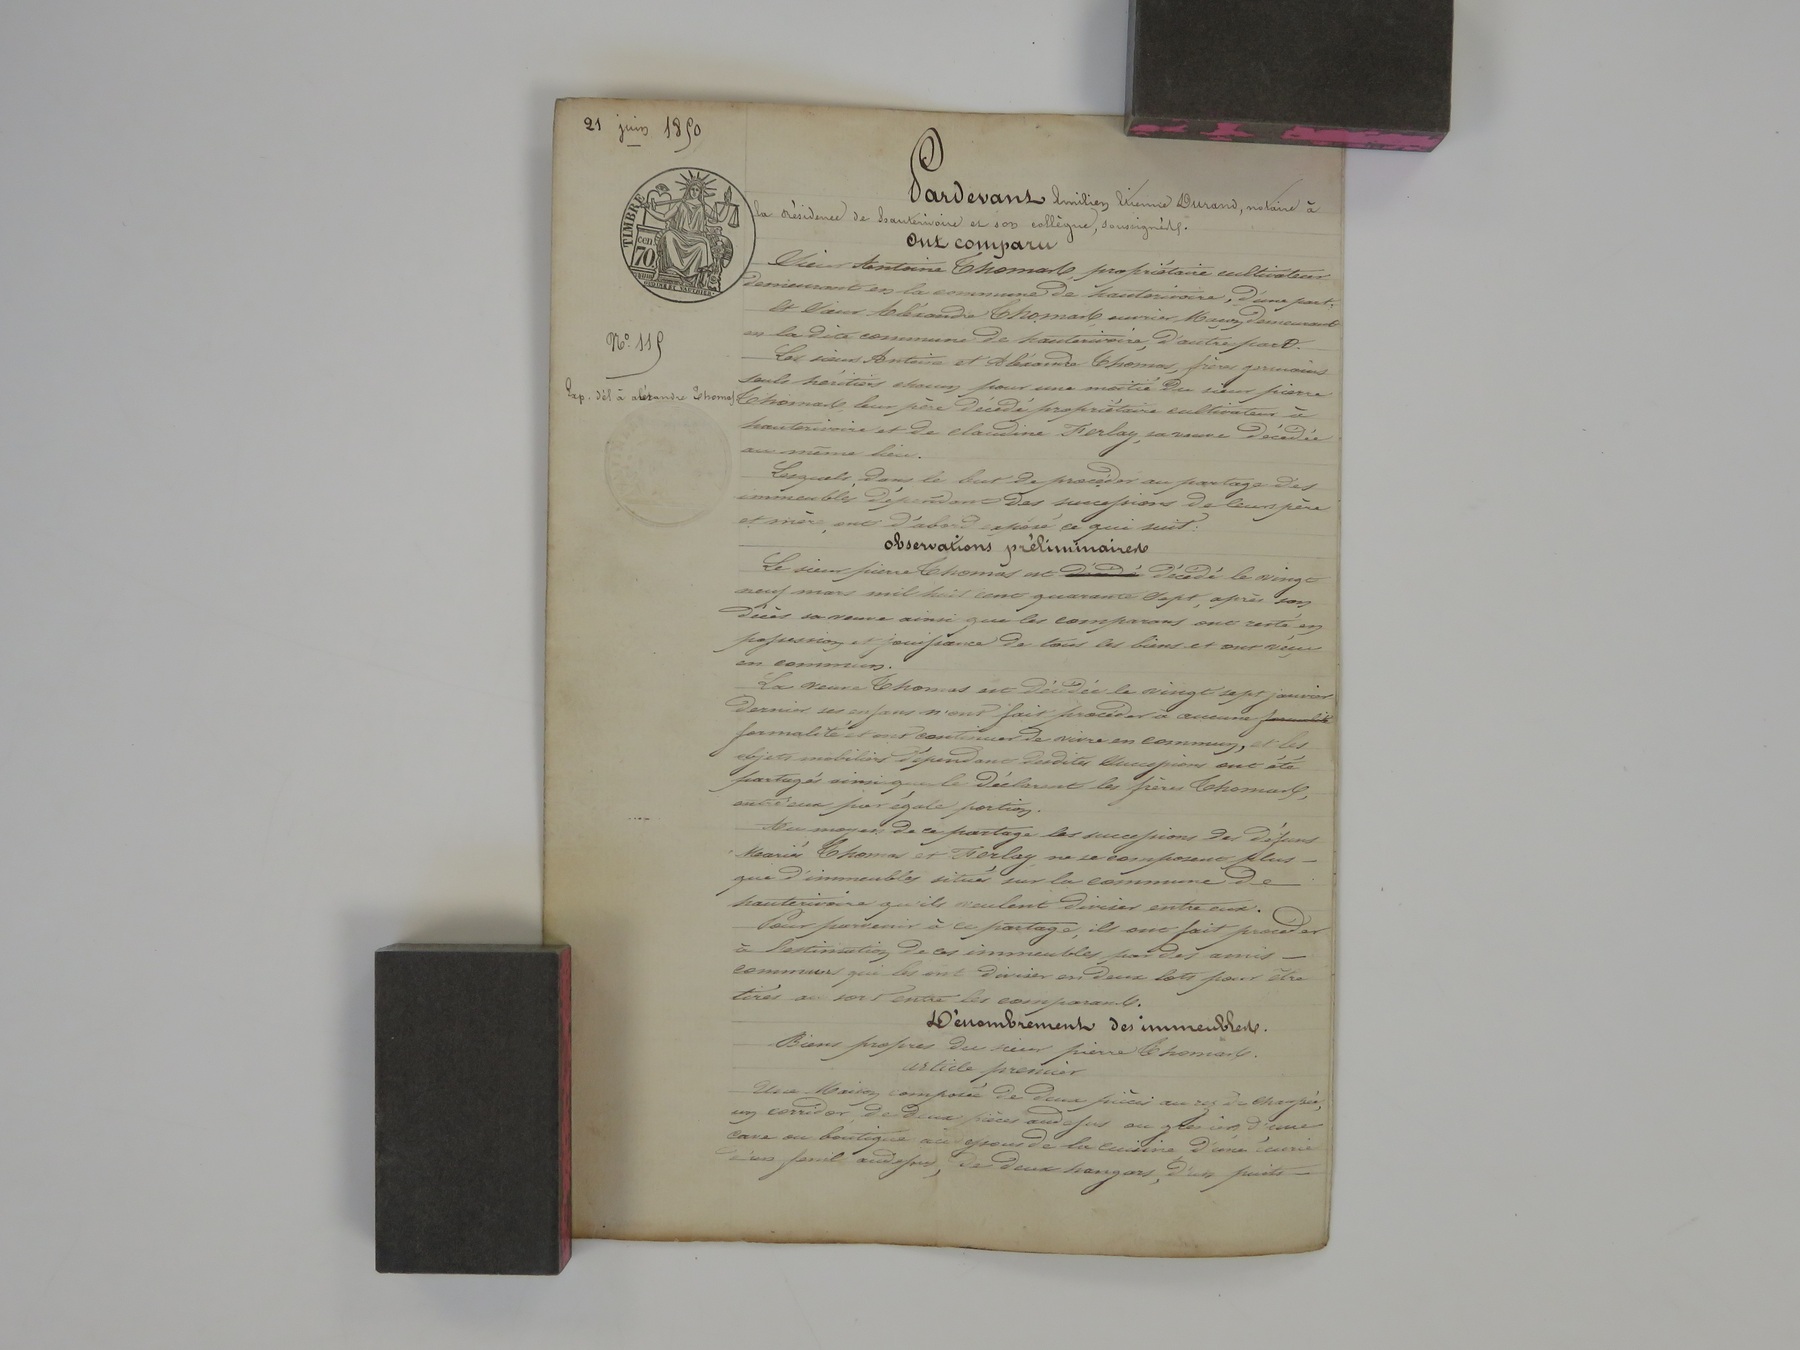 21 juin 1850
TIMBRE
cen
70
N.º 115
Exp. dél. à aléxandre Thomas
Pardevant Emilien Etienne Durand, notaire à
la résidence de hauterivoire et son collègue, soussignés.
Ont comparu
Sieur Antoine Thomas, propriétaire cultivateur
demeurant en la commune de hauterivoire, d'une part.
Et Sieur Aléxandre Thomas ouvrier Maçon demeurant
en la dite commune de hauterivoire, d'autre part.
Les sieurs Antoine et Aléxandre Thomas, frères germains
seuls héritiers chacun pour une moitié du sieur pierre
Thomas leur père décédé propriétaire cultivateur à
hauterivoire et de claudine Ferlay, sa veuve décédée
au même lieu.
Lesquels, dans le but de procéder au partage des
immeubles dépendant des successions de leurs père
et mère, ont d'abord exposé ce qui suit:
observations préliminaires
Le sieur pierre Thomas est décédé décédé le vingt
neuf mars mil huit cent quarante sept, après son
décès sa veuve ainsi que les comparans ont resté en
possession et jouissance de tous les biens et ont vécu
en commun.
La veuve Thomas est décédée le vingt sept janvier
dernier ses enfans n'ont fait procéder à aucune formalité
formalité et ont continuer de vivre en commun, et les
objets mobiliers dépendant desdites successions ont été
partagés ainsi que le déclarent les frères Thomas,
entr'eux par égale portion.
Au moyen de ce partage les successions des défunts
Mariés Thomas et Ferlay ne se composent plus
que d'immeubles situés sur la commune de
hauterivoire qu'ils veulent diviser entre eux.
Pour parvenir à ce partage, ils ont fait procéder
à l'estimation de ces immeubles par des amis
communs qui les ont diviser en deux lots pour être
tirés au sort entre les comparants.
Dénombrement des immeubles.
Biens propres du sieur pierre Thomas.
article premier
Une Maison composée de deux pièces au rez de chaussée,
un corridor, de deux pièces audessus ou greniers, d'une
cave ou boutique au de la cuisine d'une écurie
d'un fenil audessus, de deux hangars, d'un puits